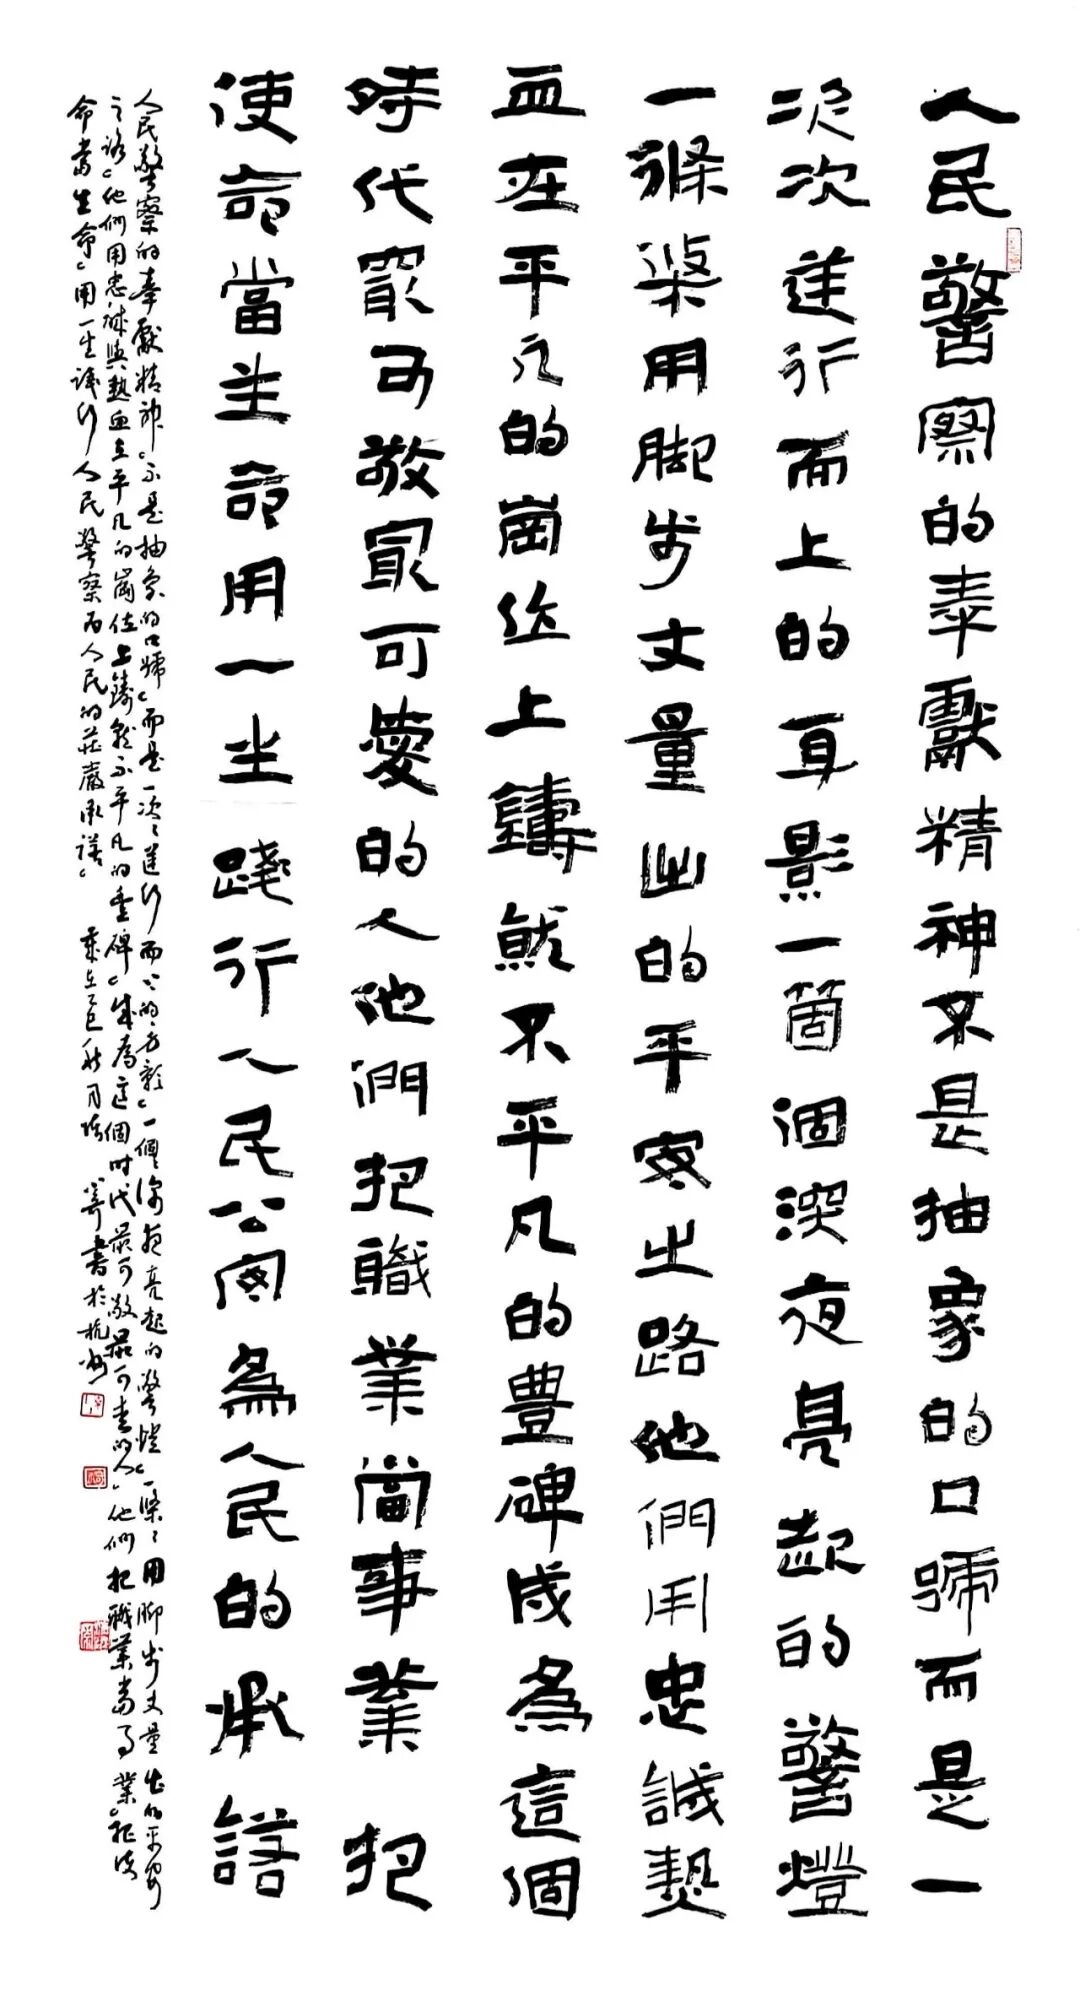 人民警察的奉獻精神不是抽象的口號而是一
次次逆行而上的身影一箇個深夜亮起的警燈
一條條用脚步丈量出的平安之路他們用忠誠熱
血在平凡的崗位上鑄就不平凡的豐碑成為這個
時代最可敬最可愛的人他們把職業當事業把
使命當生命用一生踐行人民公安為人民的承諾
人民警察的奉獻精神不是抽象的口號而是一次次逆行而上的身影一個個深夜亮起的警燈一條條用脚步丈量出的平安
之路他們用忠誠與熱血在平凡的崗位上鑄就不平凡的豐碑成為這個時代最可敬最可愛的人他們把職業當事業把使
命當生命用一生踐行人民警察為人民的莊嚴承諾 歲在乙巳秋月 書於杭州